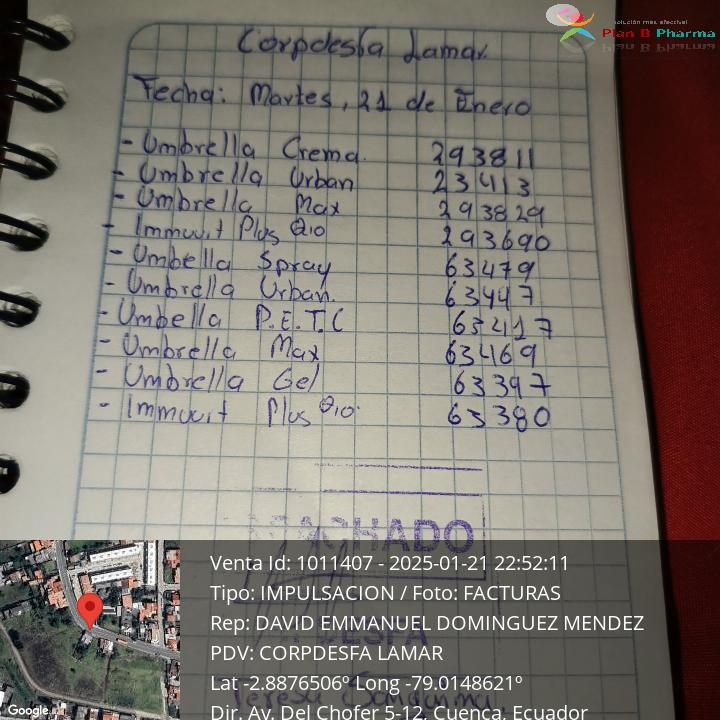 solución mas efectiva!
Plan B Pharma
Corpdesfa Lamar.
Fecha: Martes, 21 de Enero
- Umbrella Crema. 293811
- Umbrella Urban 23413
- Umbrella Max 293829
- Immuvit Plus Q10 293690
- Umbella Spray 63479
- Umbrella Urban. 63447
- Umbella P.E.T.C 63417
- Umbrella Max 63469
- Umbrella Gel 63397
- Immuvit Plus Q10. 63380
MACHADO
Venta Id: 1011407 - 2025-01-21 22:52:11
Tipo: IMPULSACION / Foto: FACTURAS
Rep: DAVID EMMANUEL DOMINGUEZ MENDEZ
PDV: CORPDESFA LAMAR
Lat -2.8876506º Long -79.0148621º
Dir. Av. Del Chofer 5-12, Cuenca, Ecuador
Google